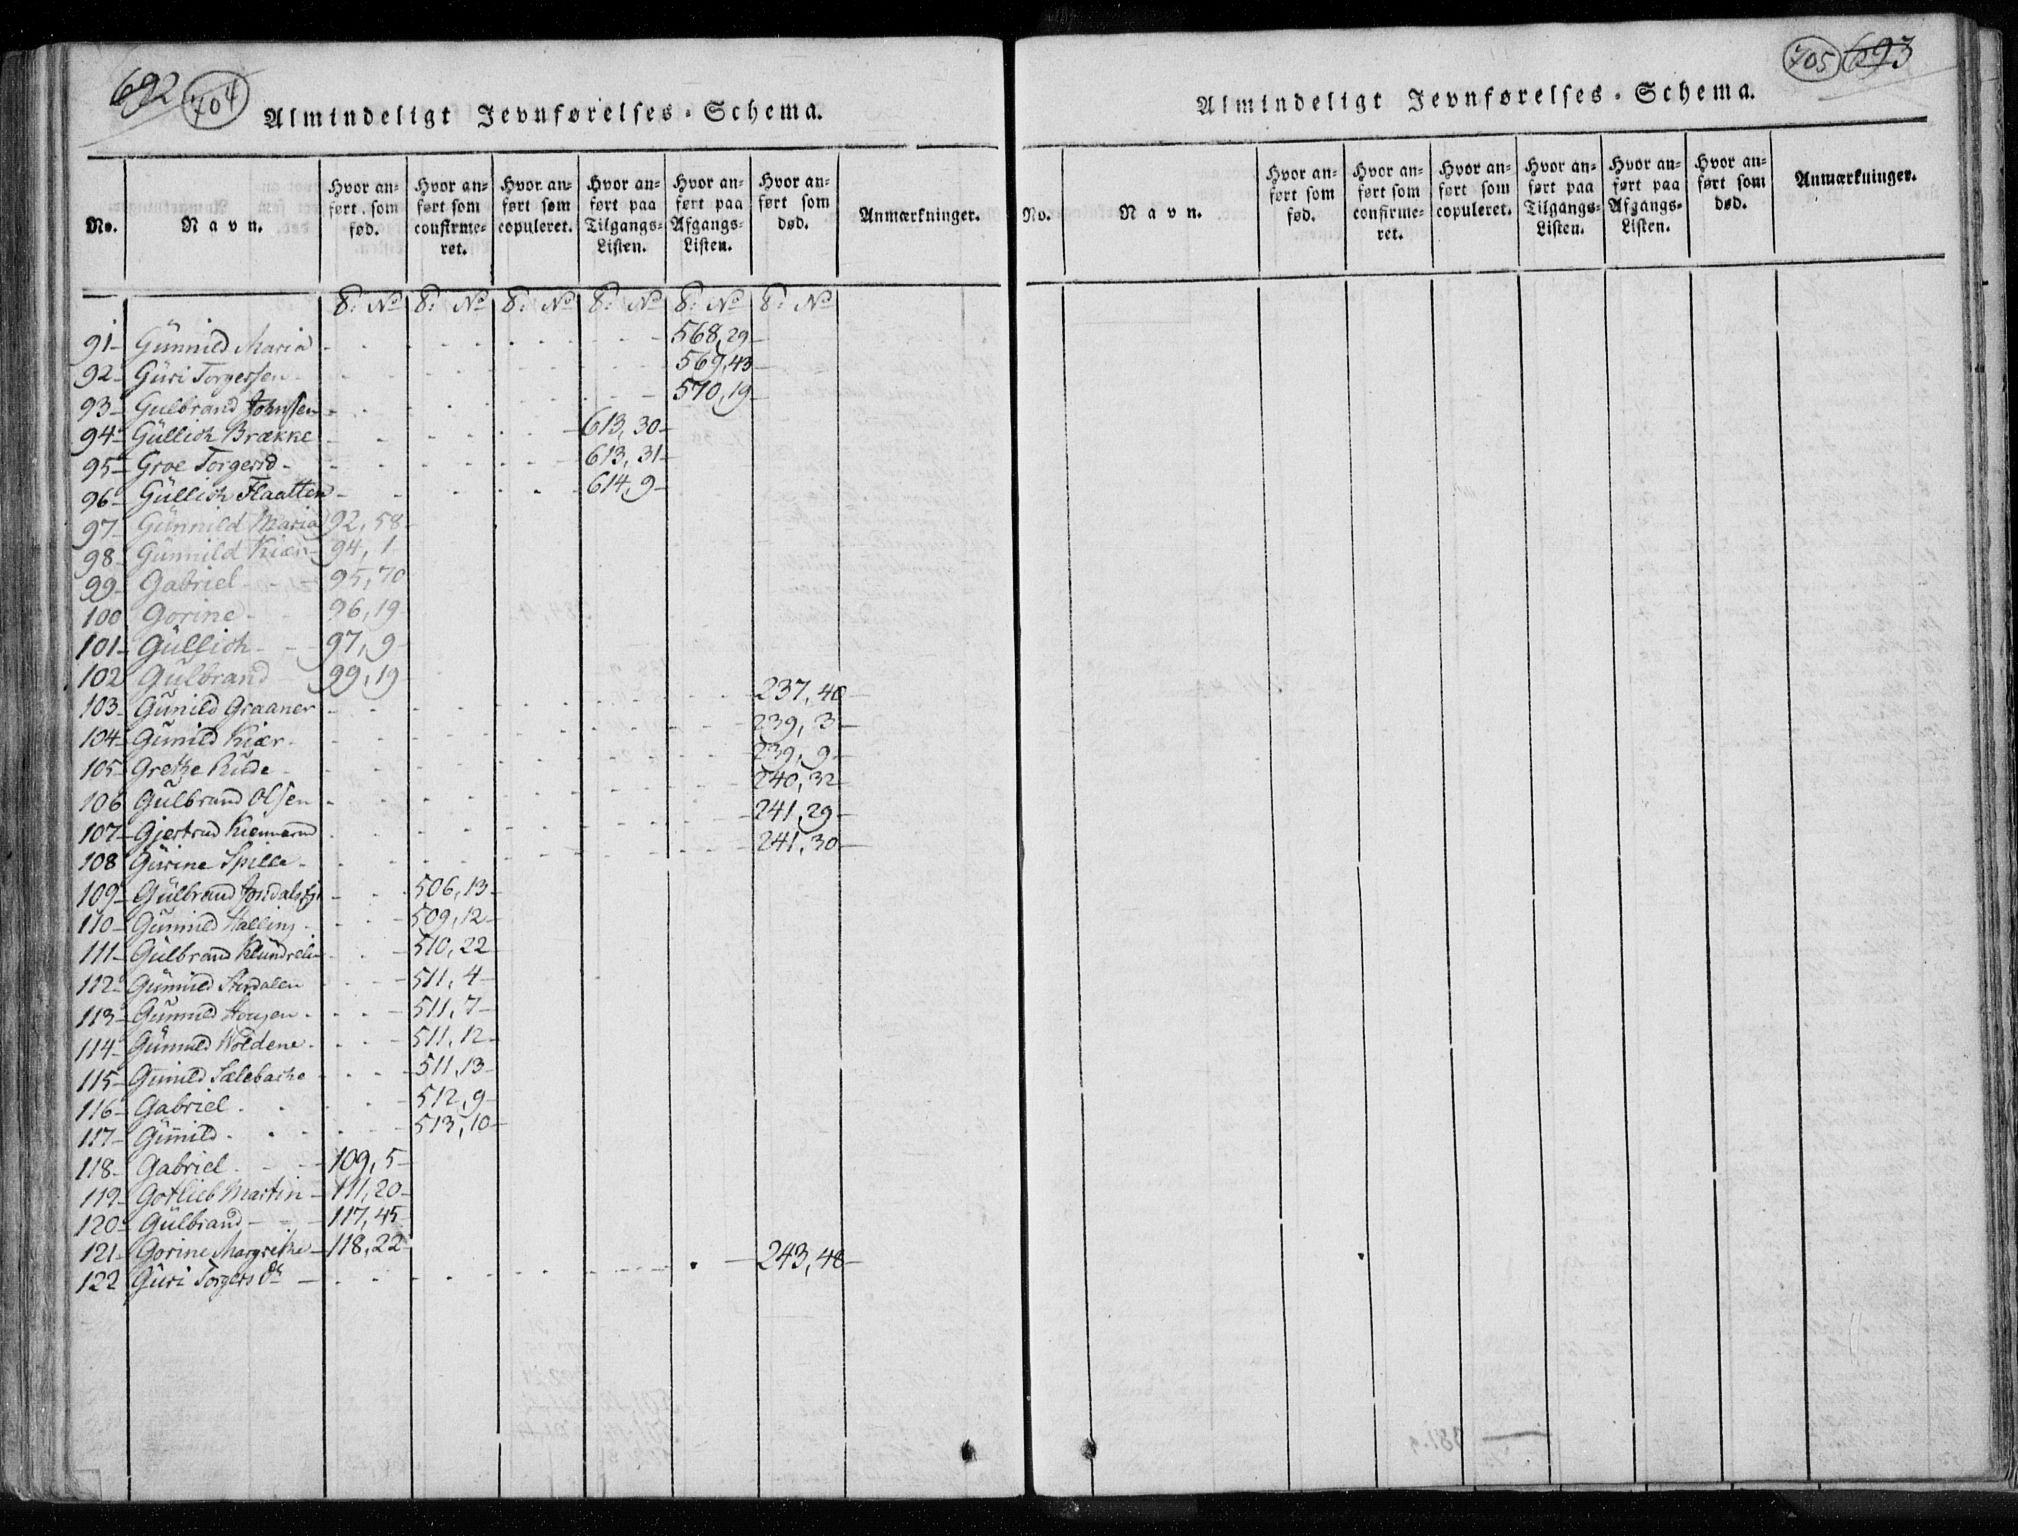 692 704
Almindeligt Jevnførelses-Schema.
No. Navn. Hvor anført som fød. Hvor anført som confirmeret. Hvor anført som copuleret. Hvor anført paa Tilgangs-Listen. Hvor anført paa Afgangs-Listen. Hvor anført som død. Anmærkninger.
S. No S. No S. No S. No S. No S. No
91 Günnild Maria 568,29
92 Güri Torgersen 569,43
93 Gulbrand Johnsen 570,19
94 Güllich Brække 613,30
95 Groe Torgersd 613,31
96 Güllich Flaatten 614,9
97 Günnild Maria 92,58
98 Günnild Kiær 94,1
99 Gabriel 95,70
100 Gorine 96,19
101 Güllich 97,9
102 Gulbrand 99,19
103 Gunild Graaner 237,40
104 Gunild Kiær 239,3
105 Grethe Rude 239,9
106 Gulbrand Olsen 240,32
107 Gjertrud 241,29
108 Gurine Spille 241,30
109 Gülbrand 506,13
110 Günnild Halling 509,12
111 Gülbrand 510,22
112 Günnild 511,4
113 Gunnild Hougen 511,7
114 Günnild Woldene 511,12
115 Gunild Sælebakke 511,13
116 Gabriel 512,9
117 Gunild 513,10
118 Gabriel 109,5
119 Gotlieb Martin 111,20
120 Gülbrand 117,45
121 Gorine Margrethe 118,22
122 Güri Torgers Dr 243,48
705 693
Almindeligt Jevnførelses-Schema.
No. Navn. Hvor anført som fød. Hvor anført som confirmeret. Hvor anført som copuleret. Hvor anført paa Tilgangs-Listen. Hvor anført paa Afgangs-Listen. Hvor anført som død. Anmærkninger.